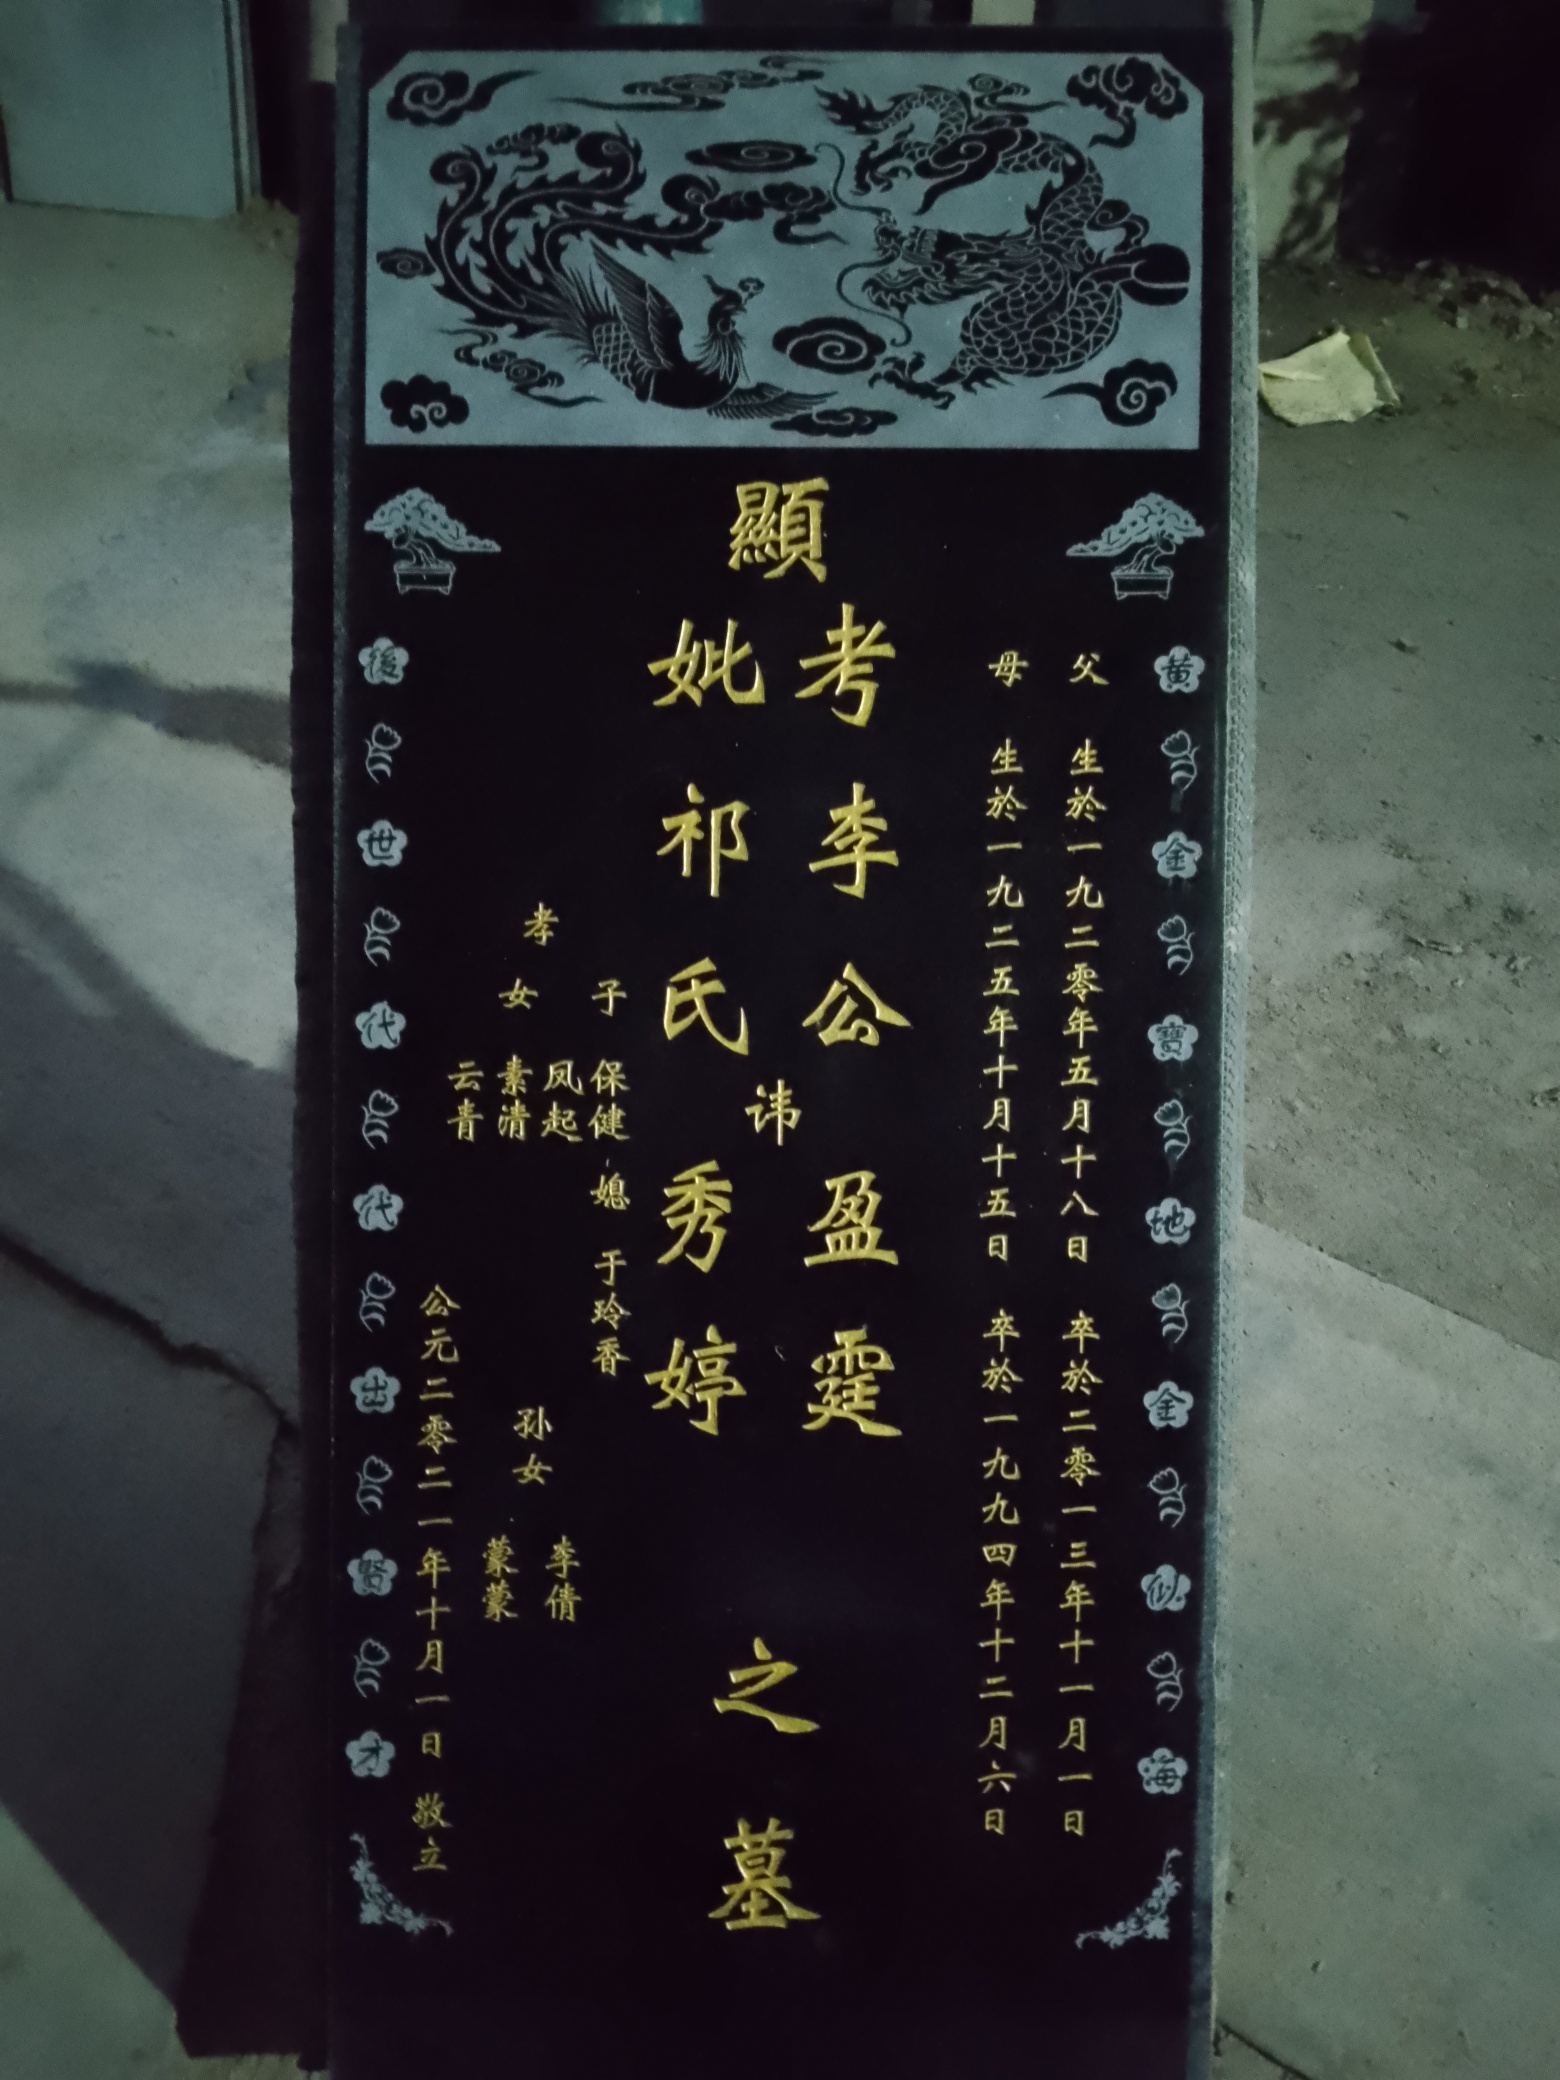 黄金寶地金似海
父 生於一九二零年五月十八日 卒於二零一三年十一月一日
母 生於一九二五年十月十五日 卒於一九九四年十二月六日
顯
考李公盈霆
妣祁氏秀婷
讳
之墓
孝
子 保健 媳 于玲香
凤起
女 素清
云青
孙女
李倩
蒙蒙
公元二零二一年十月一日 敬立
後世代代出賢才